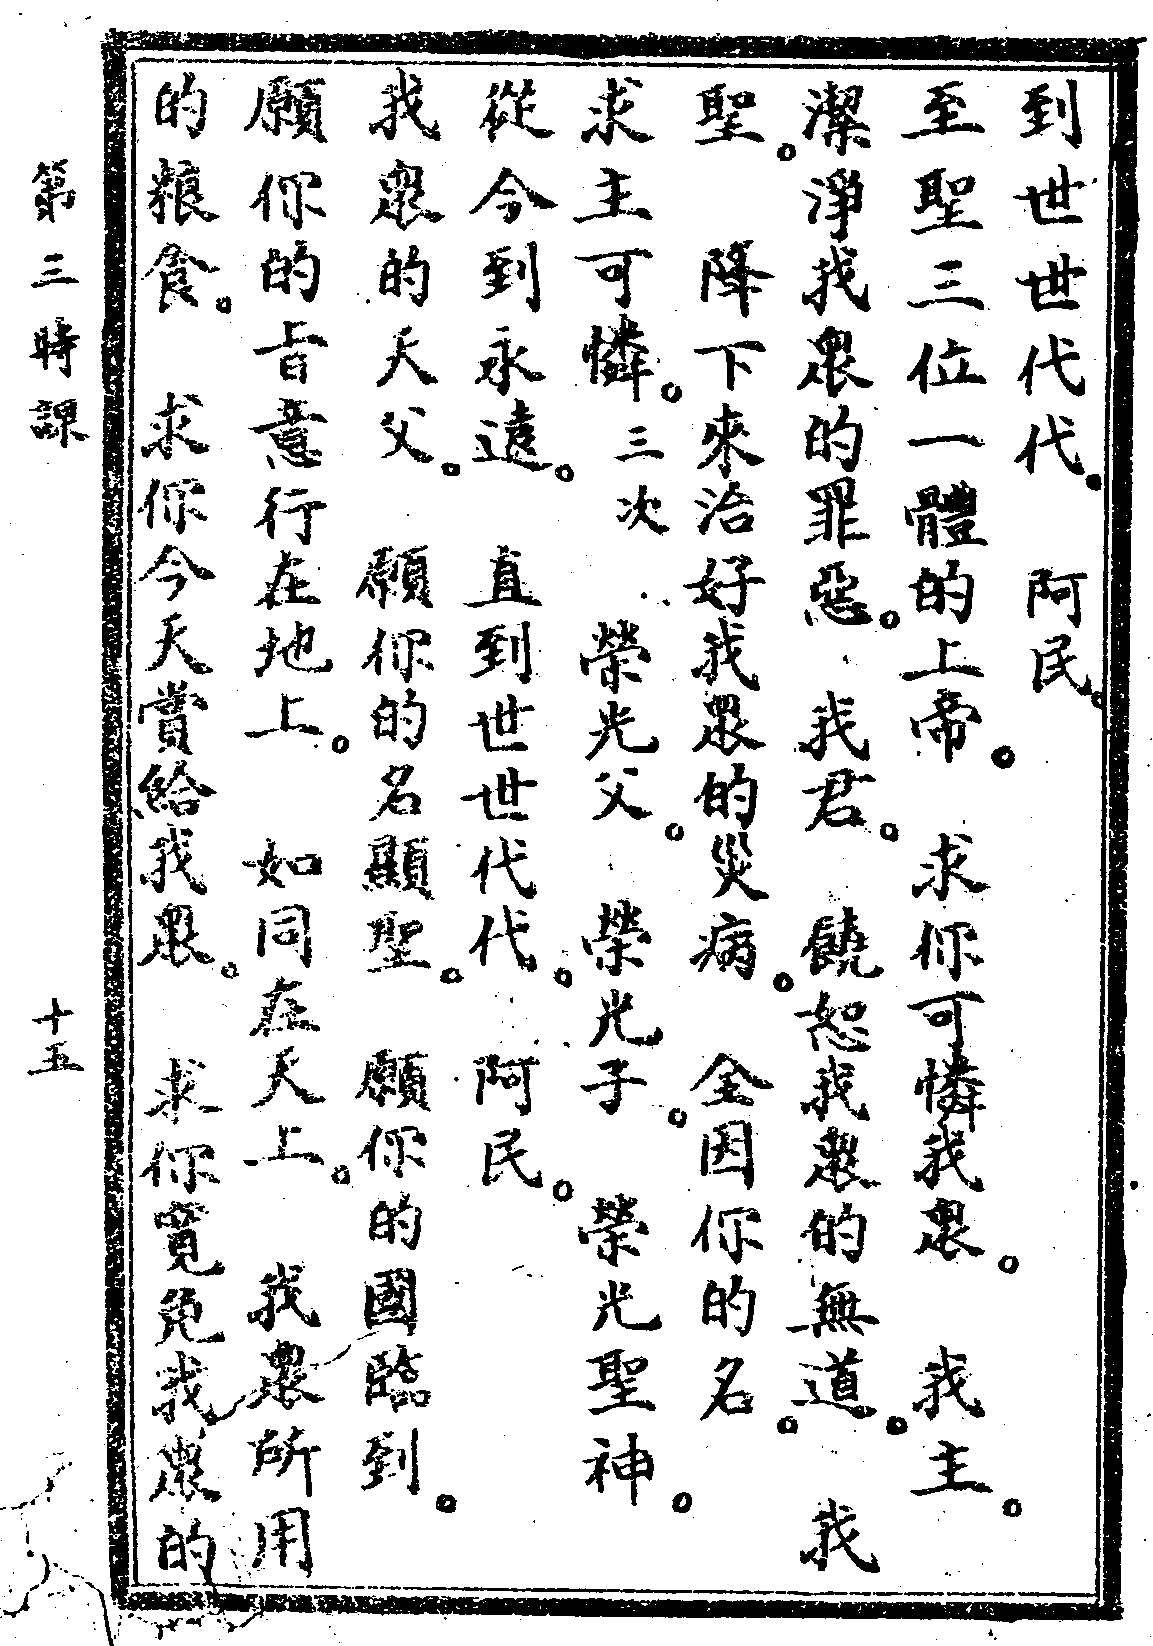 到世世代代。阿民。
至聖三位一體的上帝。求你可憐我眾。我主。
潔淨我眾的罪惡。我君。饒恕我眾的無道。我
聖。降下來治好我眾的災病。全因你的名。
求主可憐。三次 榮光父。榮光子。榮光聖神。
從今到永遠。直到世世代代。阿民。
我眾的天父。願你的名顯聖。願你的國臨到。
願你的旨意行在地上。如同在天上。我眾所用
的粮食。求你今天賞給我眾。求你寬免我眾的
第三時課
十五